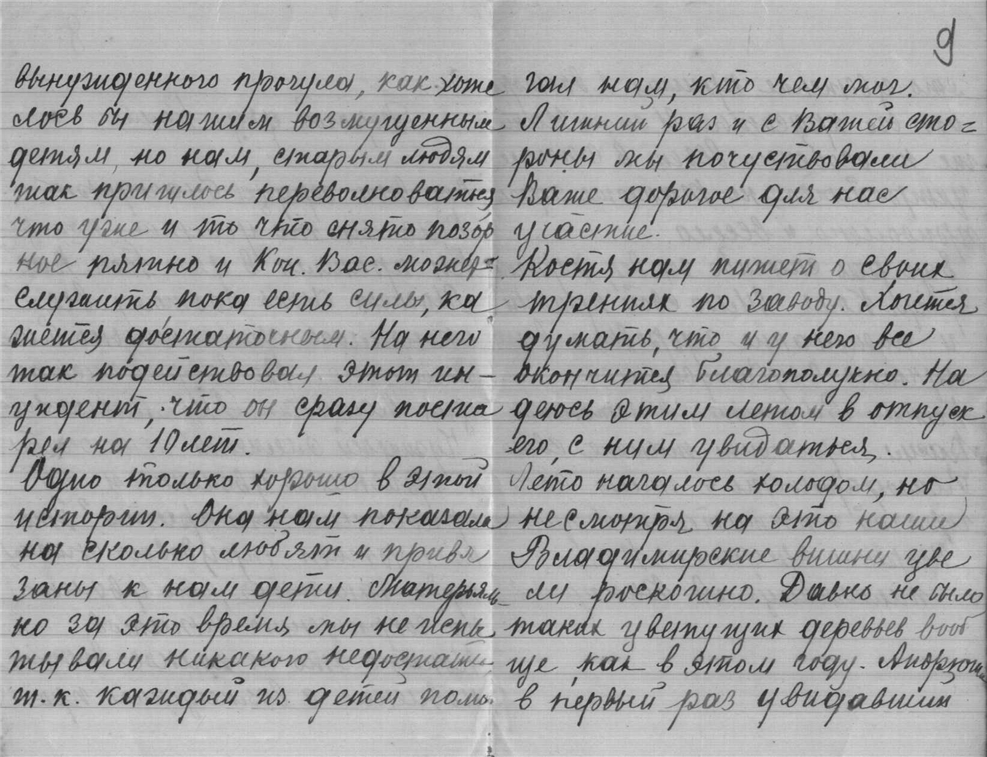 9
вынужденного прогула, как хоте
лось бы нашим возмущенным
детям, но нам, старым людям
так пришлось переволноваться
что уже и то что снято позор
ное пятно и Кон. Вас. может
служить пока есть силы, ка
жется достаточным. На него
так подействовал этот ин-
цидент, что он сразу поста
рел на 10 лет.
Одно только хорошо в этой
истории. Она нам показала
на сколько любят и привя
заны к нам дети. Матерьяль-
но за это время мы не испы
тывали никакого недостатка
т.к. каждый из детей помо
гал нам, кто чем мог.
Лишний раз и с Вашей сто=
роны мы почуствовали
Ваше дорогое для нас
участие.
Костя нам пишет о своих
трениях по заводу. Хочется
думать, что и у него все
окончится благополучно. На
деюсь этим летом в отпуск
его, с ним увидаться.
Лето началось холодом, но
несмотря на это наши
Владимирские вишни цве
ли роскошно. Давно не было
таких цветущих деревьев вооб
ще, как в этом году.
в первый раз увидавший